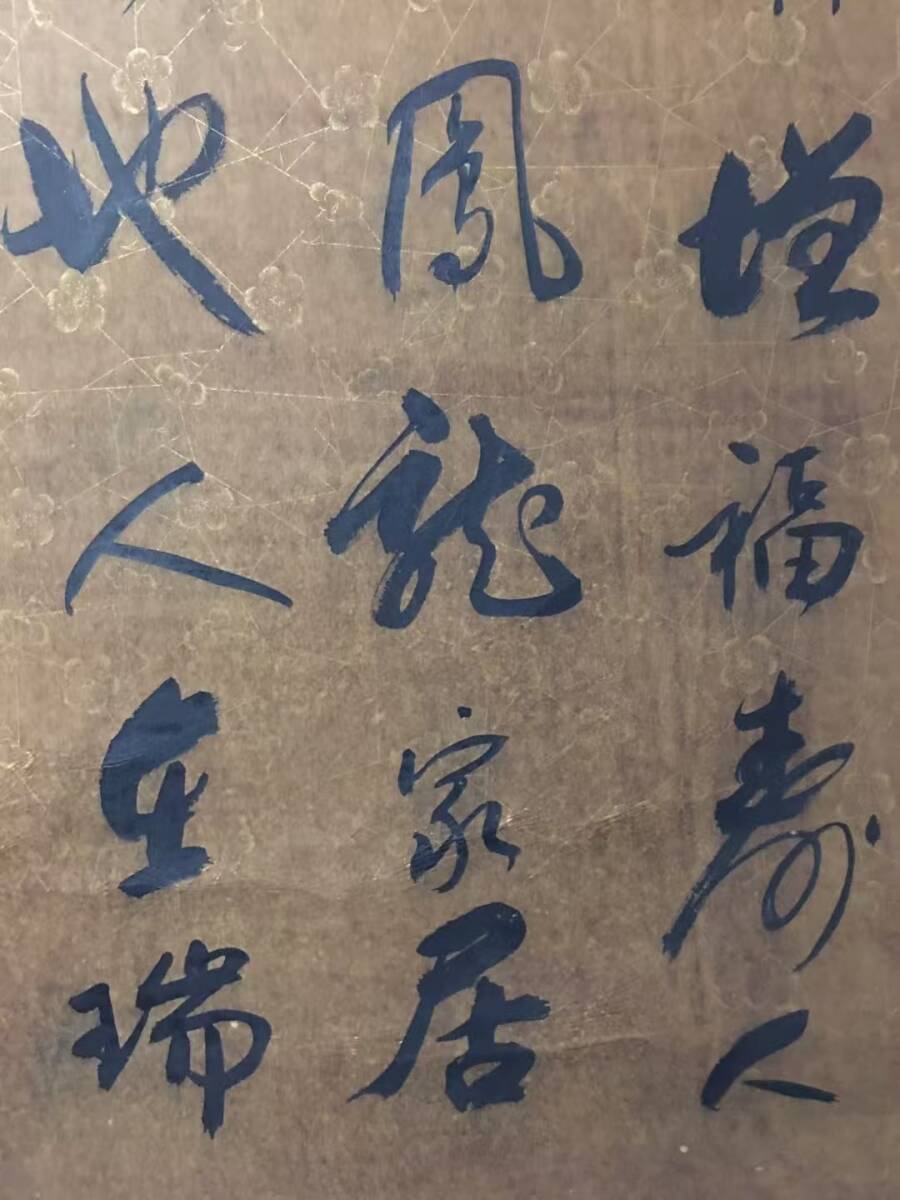 增福壽人
鳳龍家居
地人在瑞